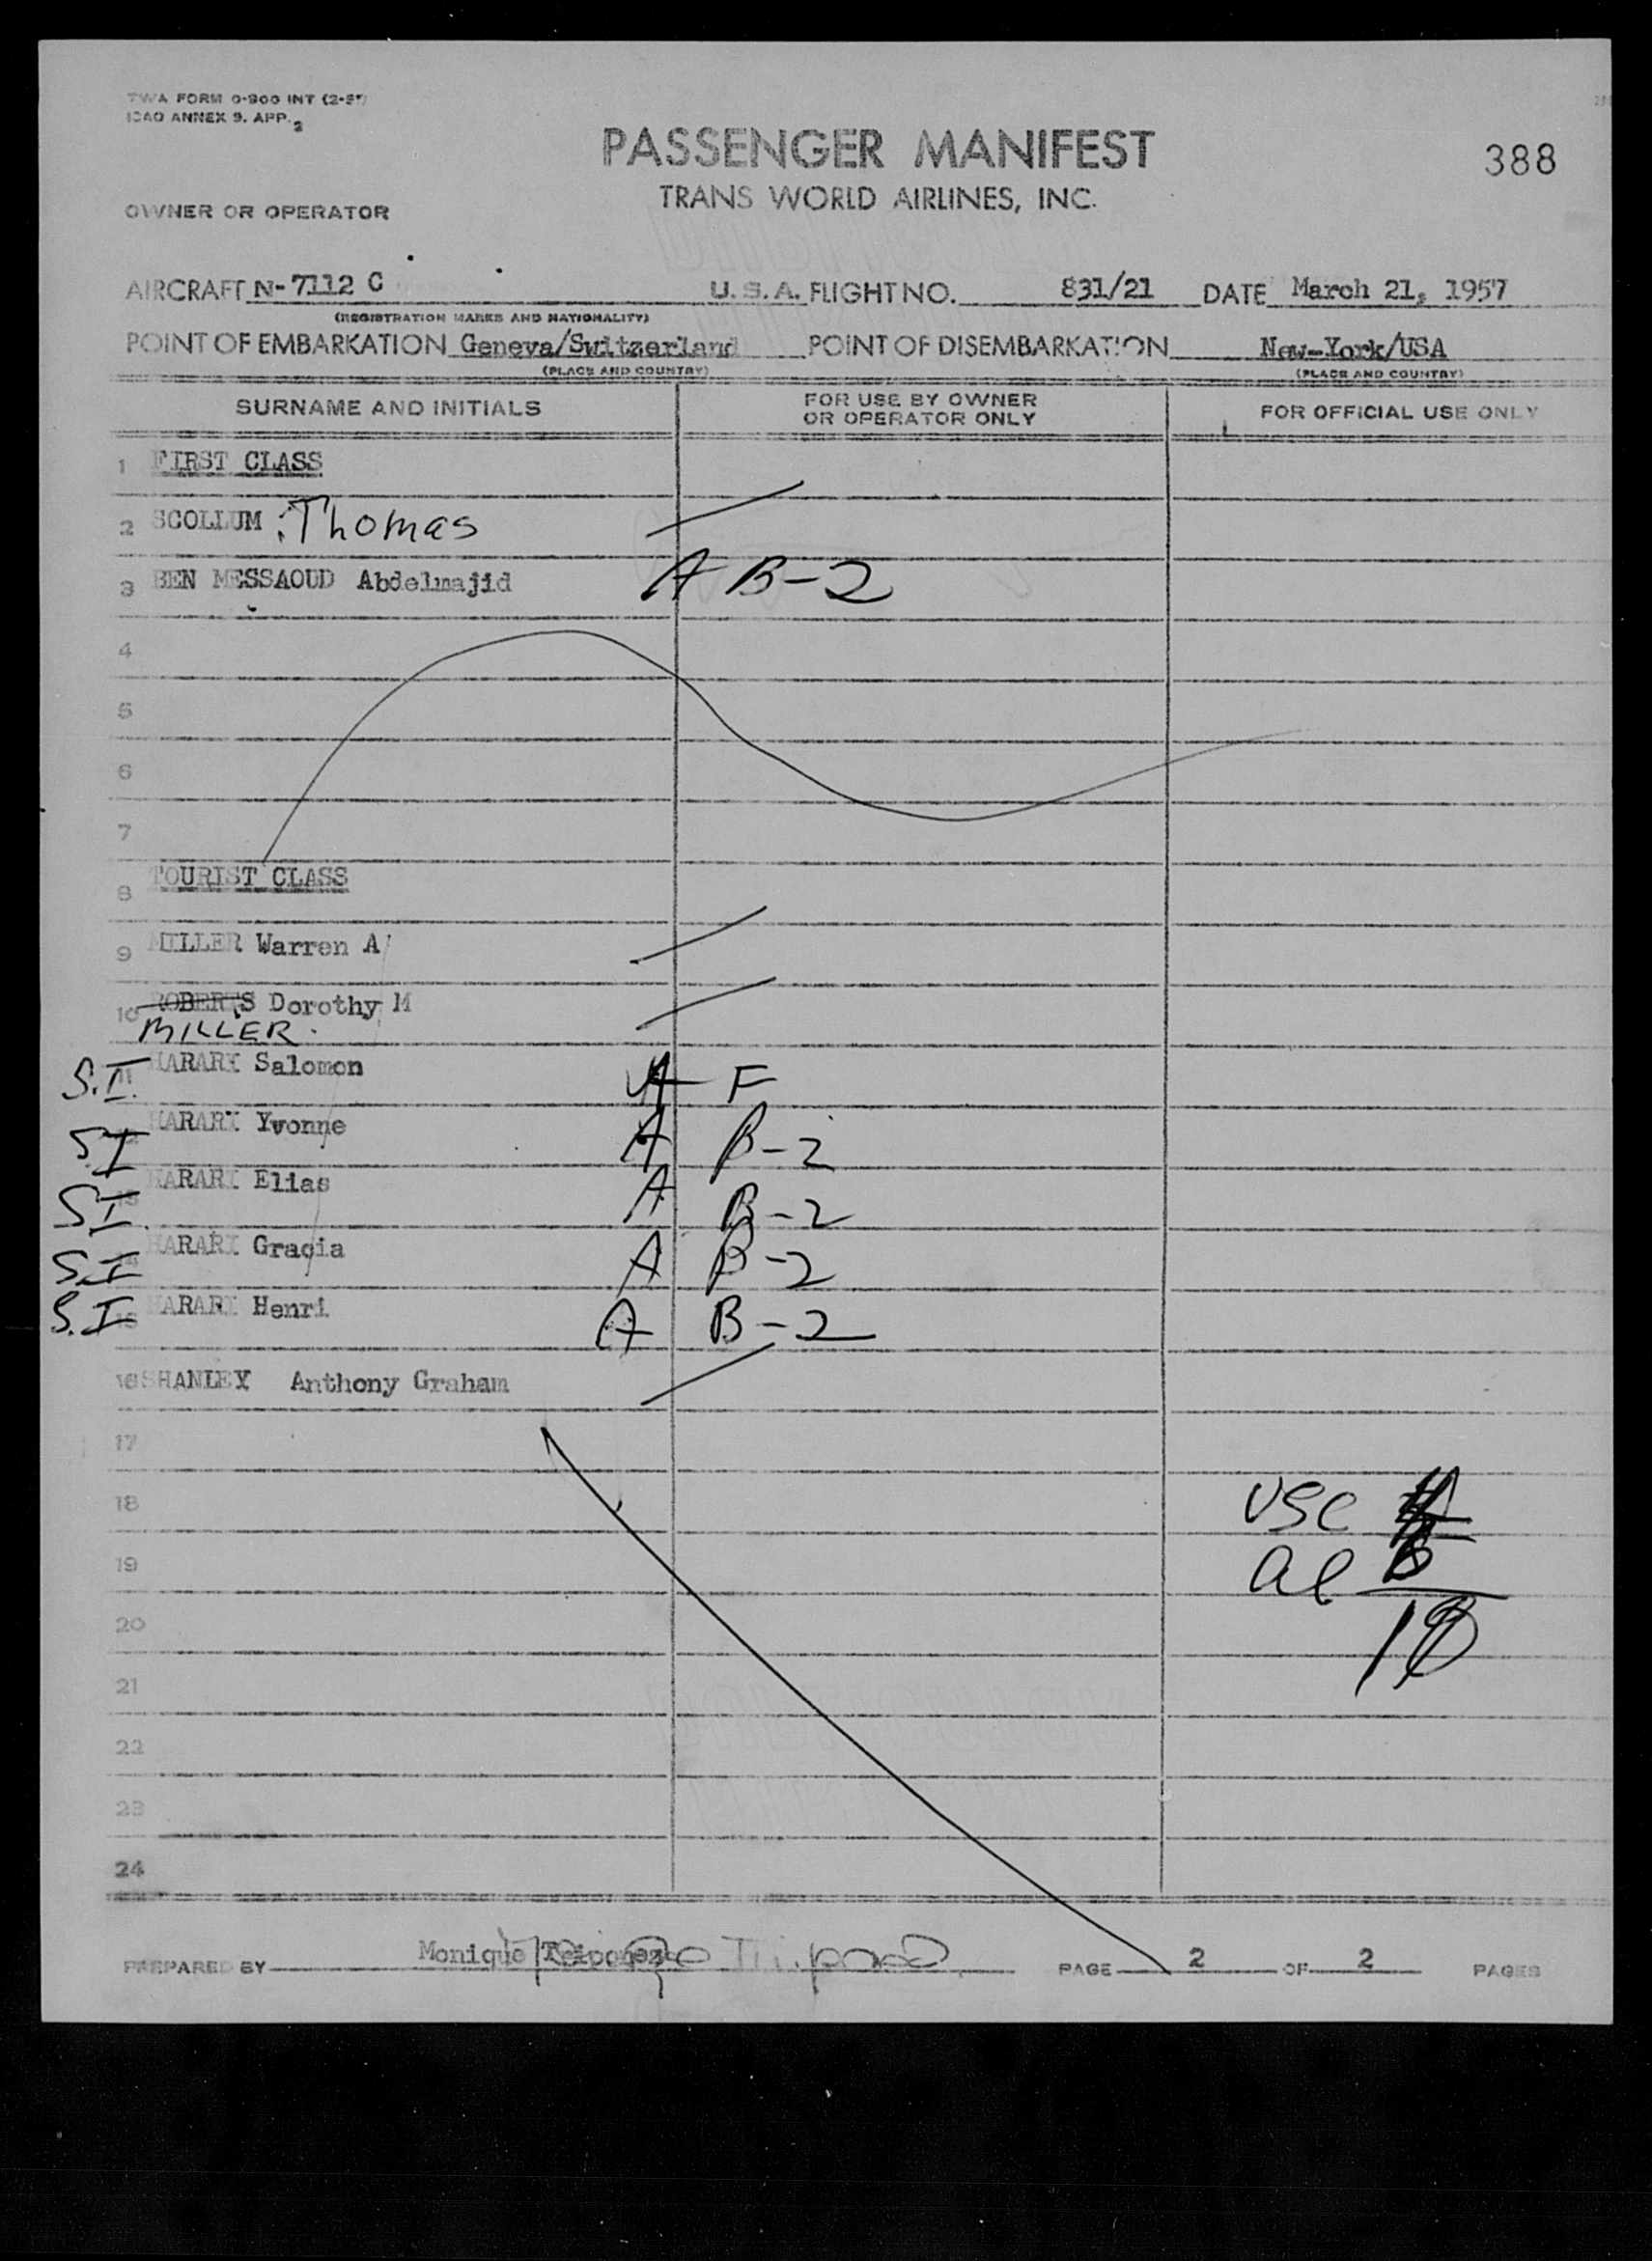 TWA FORM 0-900 INT (2-5
ICAO ANNEX 9. APP. 2
PASSENGER MANIFEST
388
TRANS WORLD AIRLINES, INC.
OWNER OR OPERATOR
AIRCRAFT N-7112 C U. S. A. FLIGHT NO. 831/21 DATE March 21, 1957
(REGISTRATION MARKS AND NATIONALITY)
POINT OF EMBARKATION Geneva/Switzerland POINT OF DISEMBARKATION New-York/USA
(PLACE AND COUNTRY) (PLACE AND COUNTRY)
SURNAME AND INITIALS FOR USE BY OWNER OR OPERATOR ONLY FOR OFFICIAL USE ONLY
1 FIRST CLASS
2 SCOLLUM Thomas
3 BEN MESSAOUD Abdelmajid A B-2
4
5
6
7
8 TOURIST CLASS
9 MILLER Warren A
10 ROBERTS Dorothy M
MILLER
S.I. 11 HARARI Salomon A F
S.I HARARI Yvonne A B-2
S.I HARARI Elias A B-2
S.I HARARI Gracia A B-2
S.I HARARI Henri A B-2
16 SHANLEY Anthony Graham
17
18 USC
19 al
20
21
22
23
24
PREPARED BY Monique PAGE 2 OF 2 PAGES